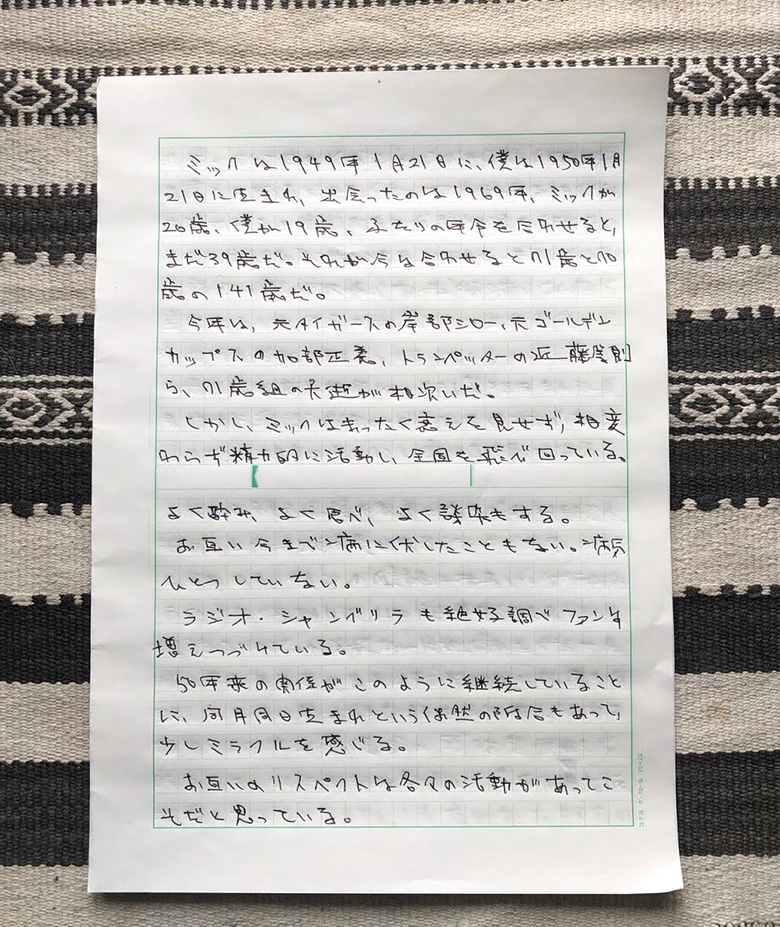 ミックは1949年1月21日に、僕は1950年1月
21日に生まれ、出会ったのは1969年、ミックが
20歳、僕が19歳、ふたりの年令を合わせると、
まだ39歳だ。それが今は合わせると71歳と70
歳の141歳だ。
今年は、元タイガースの岸部シロー、元ゴールデン
カップスの加部正義、トランペッターの近藤等則
ら、71歳組の夭逝が相次いだ。
しかし、ミックはまったく衰えを見せず、相変
わらず精力的に活動し、全国を飛び回っている。
よく飲み、よく食べ、よく談笑もする。
お互い今まで病に伏したこともない。病気
ひとつしていない。
ラジオ・シャングリラも絶好調でファンも
増えつづけている。
50年来の関係がこのように継続していること
に、同月同日生まれという偶然の符合もあって、
少しミラクルを感じる。
お互いのリスペクトは各々の活動があってこ
そだと思っている。
コクヨ ケ-70 20×20